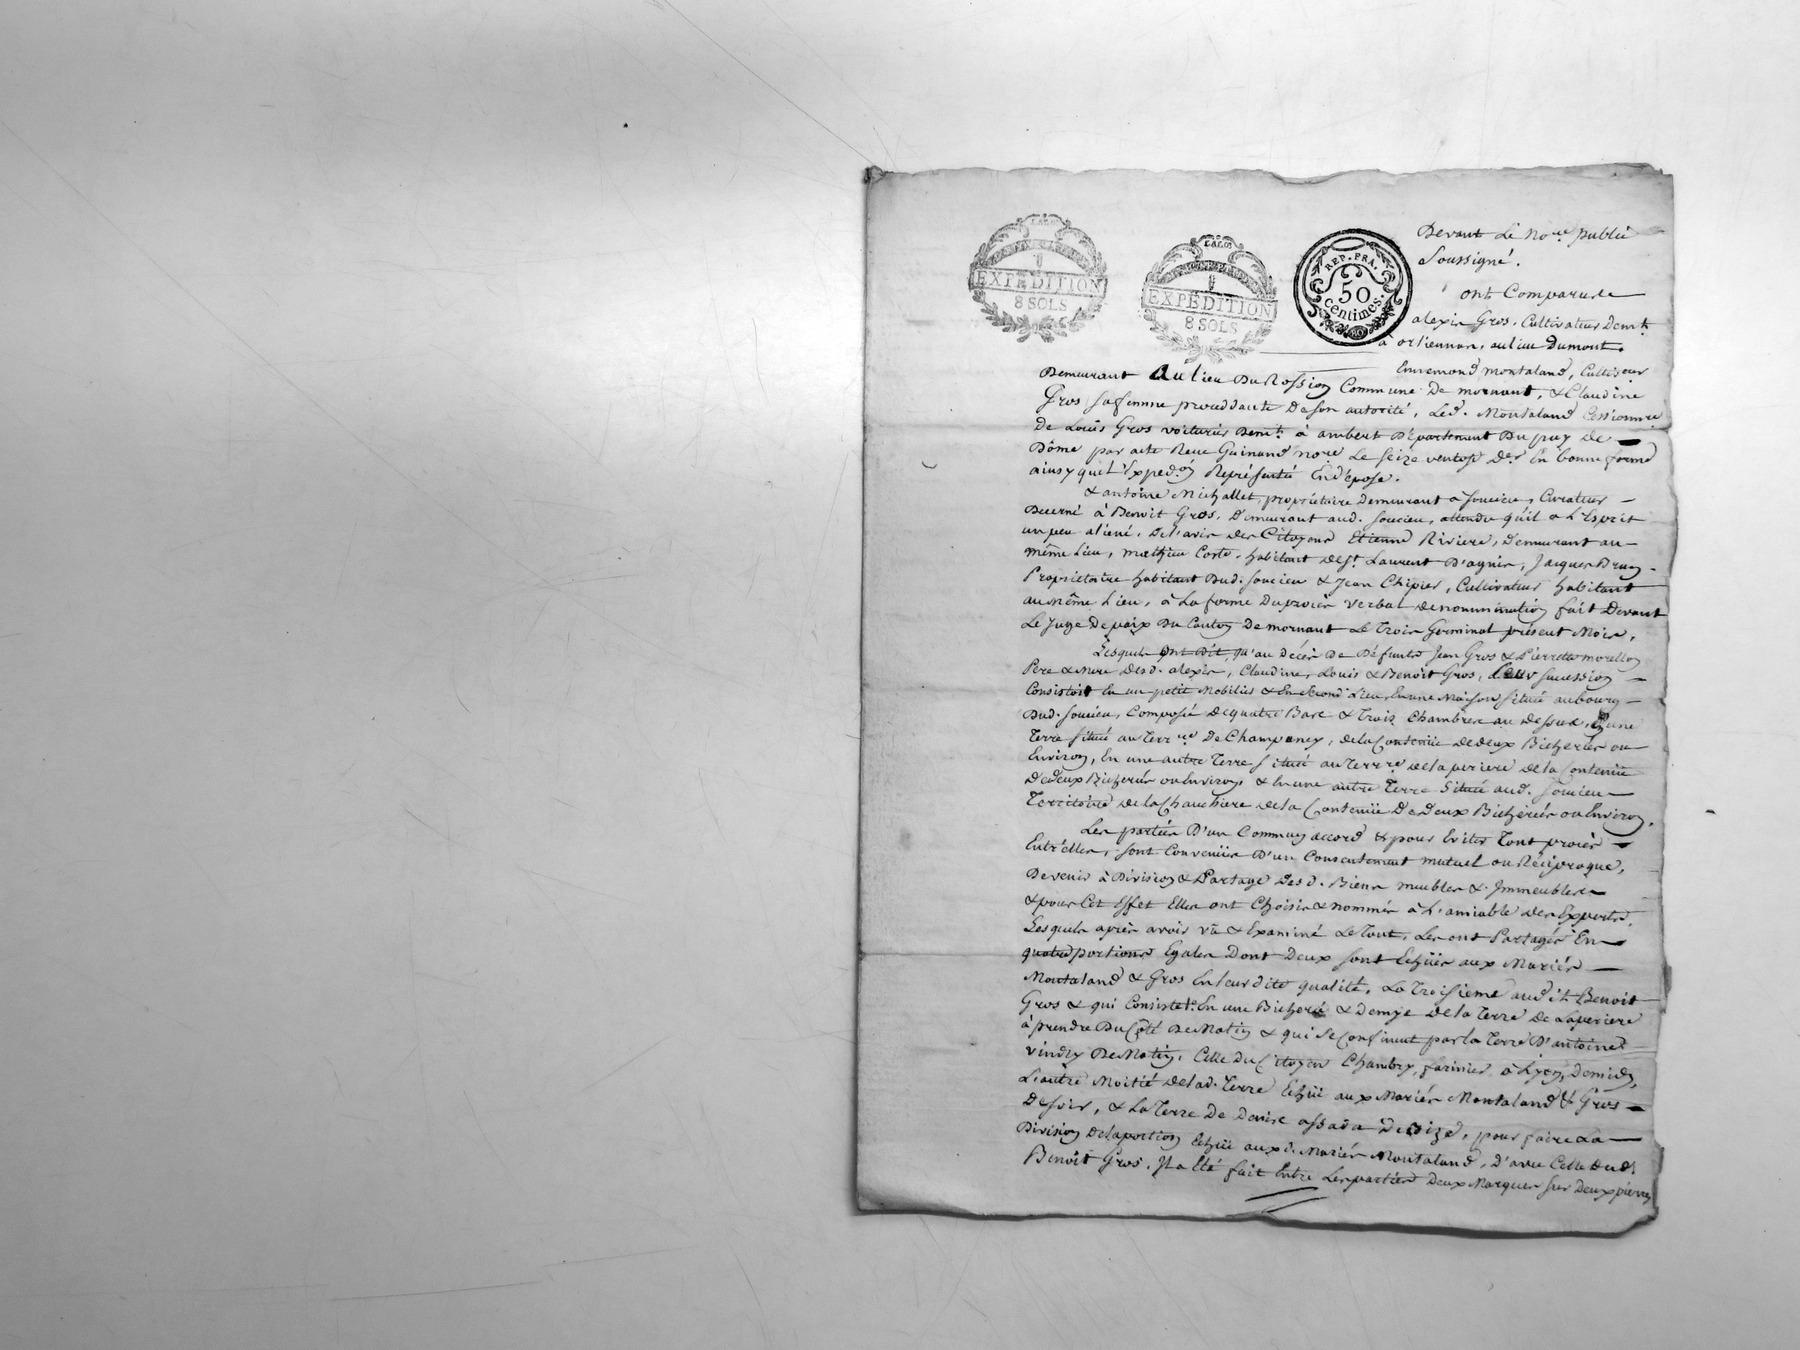 LALOI
EXPEDITION
8 SOLS
LALOI
EXPEDITION
8 SOLS
REP. FRA.
50
centimes.
Devant Le No.re public
Soussigné.
ont Comparu Le
alexis Gros, Cultivateur Dem.t
à orliennas, au lieu Dumont.
Ennemond montaland, Cultivateur
Demeurant Au lieu Du Rossion Commune De mornant, & Claudine
Gros sa femme proceddante De son autorité, Led. Montaland Cessionnre
De Louis Gros voiturier Dem.t à ambert Département Du puy de
Dôme par acte Reçu Guinand no.re Le seize ventose D.er En bonne forme
ainsy qu'il Exped.on Représenté En dépose.
& antoine Michallet, propriétaire Demeurant a soucieu, Curateur
Decerné à Benoit Gros, Demeurant aud. Soucieu, attendu quil a L'Esprit
un peu aliené, De l'avis des Citoyens Etienne Riviere, Demeurant au
même Lieu, mathieu Coste, habitant de St. Laurent D'agnis, Jacques
Propriétaire habitant Dud. Soucieu & Jean Chipier, Cultivateur habitant
au même Lieu, à La forme Du procès verbal de nommination fait Devant
Le Juge De paix Du Canton De mornant Le Trois Germinal présent Mois,
Lesquels ont Dit, qu'au Décès De Défunts Jean Gros & Pierrette morellon
Pere & mere Desd. alexis, Claudine, Louis & Benoit Gros, Leur succession
Consistoit En un petit Mobilier & En second Lieu, En une Maison située au bourg
Dud. Soucieu, Composé De quatre Bas & Trois Chambres au Dessus, En une
Terre située au Terr.re De Champaney, de la Contenüe de deux Bicherées ou
Environ, En une autre Terre située au Terr.re de la periere de la Contenüe
De deux Bicherées ou Environ, & En une autre Terre située aud. Soucieu
Territoire de la Chauchiere de la Contenüe De deux Bicherées ou Environ.
Les parties D'un Commun accord & pour Eviter Tout procès
Entr'elles, sont Convenües D'un Consentement mutuel ou Réciproque,
De venir à Division & Partage Desd. Biens meubles & Immeubles
& pour Cet Effet Elles ont Choisis & nommés à L'amiable des Experts,
Lesquels après avoir vû & Examiné Le Tout, Les ont Partagés En
quatre portions Egales Dont Deux sont Echües aux Mariés
Montaland & Gros En leur dite qualité, La Troisieme aud it Benoit
Gros & qui Consiste 1.° En une Bicherée & Demye de la Terre De Laperiere
à prendre Du Côté De Matin & qui se Confinent par la Terre D'antoine
vindry De Matin, Celle Du Citoyen Chambry, farinier à Lyon, De midy,
L'autre Moitié de lad. Terre Echüe aux Mariés Montaland & Gros
De soir, & La Terre De Denise assada De bize, pour faire La
Division De la portion Echüe aux d. Mariés Montaland, D'avec Celle dud.
Benoit Gros, Il a Eté fait Entre Les parties Deux Marques sur Deux pierres